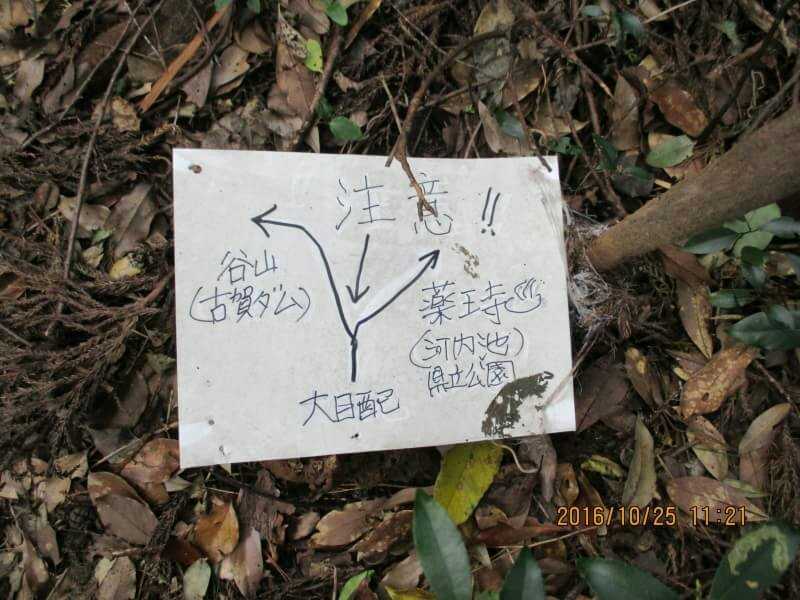 注意!!
谷山
(古賀ダム)
薬王寺♨
(河内池)
県立公園
大目配
2016/10/25 11:21